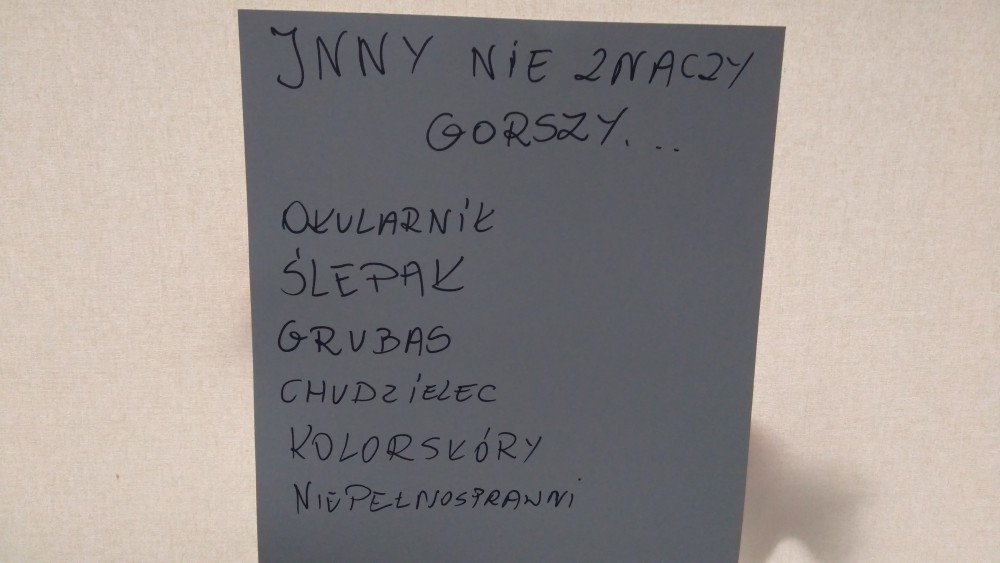 INNY NIE ZNACZY
GORSZY...
OKULARNIK
ŚLEPAK
GRUBAS
CHUDZIELEC
KOLORSKÓRY
NIEPEŁNOSPRAWNI